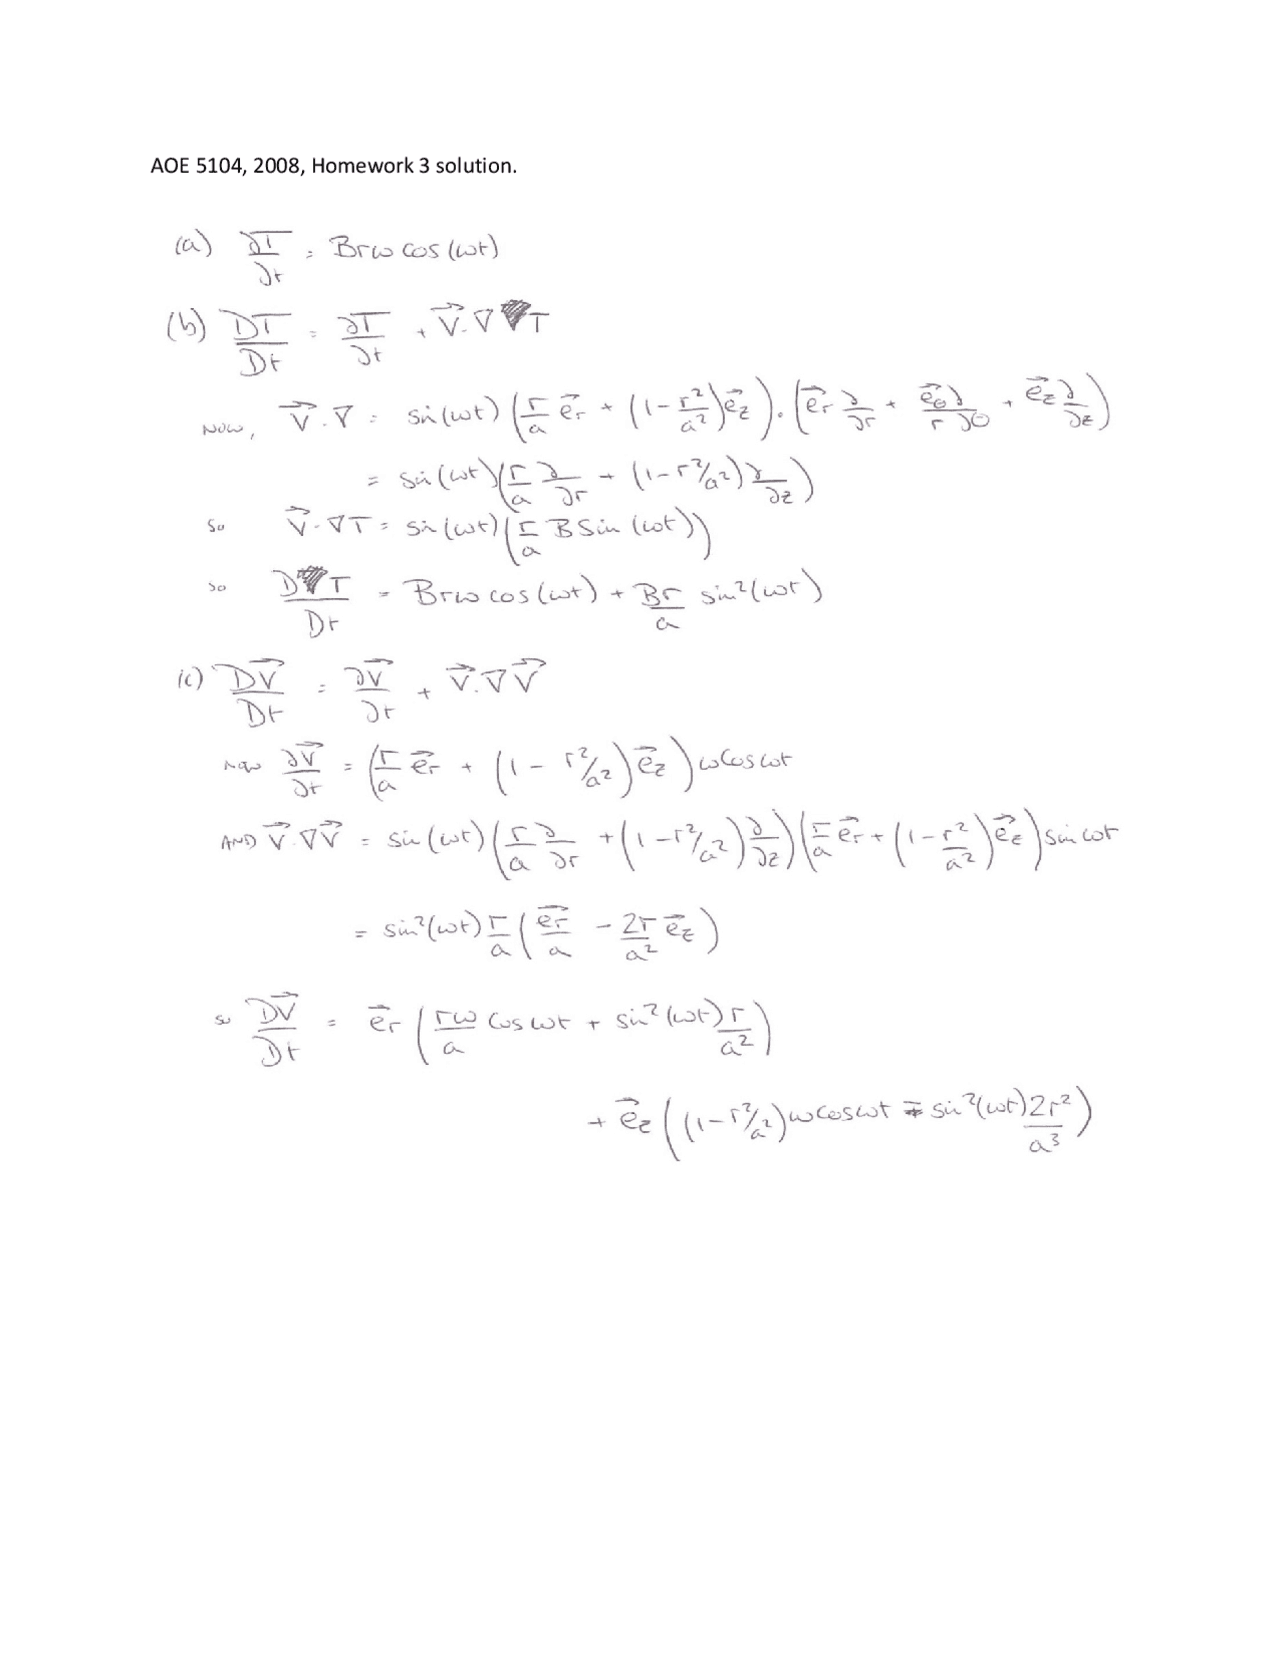 AOE 5104, 2008, Homework 3 solution.
(a) ∂T/∂t = Brω cos(ωt)
(b) DT/Dt = ∂T/∂t + V⃗.∇T
NOW, V⃗.∇ = sin(ωt)(r/a e⃗r + (1 - r²/a²)e⃗z).(e⃗r ∂/∂r + e⃗θ/r ∂/∂θ + e⃗z ∂/∂z)
= sin(ωt)(r/a ∂/∂r + (1-r²/a²)∂/∂z)
So V⃗.∇T = sin(ωt)(r/a B sin(ωt))
so DT/Dt = Brω cos(ωt) + Br/a sin²(ωt)
(c) DV⃗/Dt = ∂V⃗/∂t + V⃗.∇V⃗
now ∂V⃗/∂t = (r/a e⃗r + (1 - r²/a²)e⃗z)ω cos ωt
AND V⃗.∇V⃗ = sin(ωt)(r/a ∂/∂r + (1-r²/a²)∂/∂z)(r/a e⃗r + (1-r²/a²)e⃗z) sin ωt
= sin²(ωt) r/a (e⃗r/a - 2r/a² e⃗z)
so DV⃗/Dt = e⃗r (rω/a cos ωt + sin²(ωt) r/a²)
+ e⃗z ((1-r²/a²)ω cos ωt - sin²(ωt) 2r²/a³)